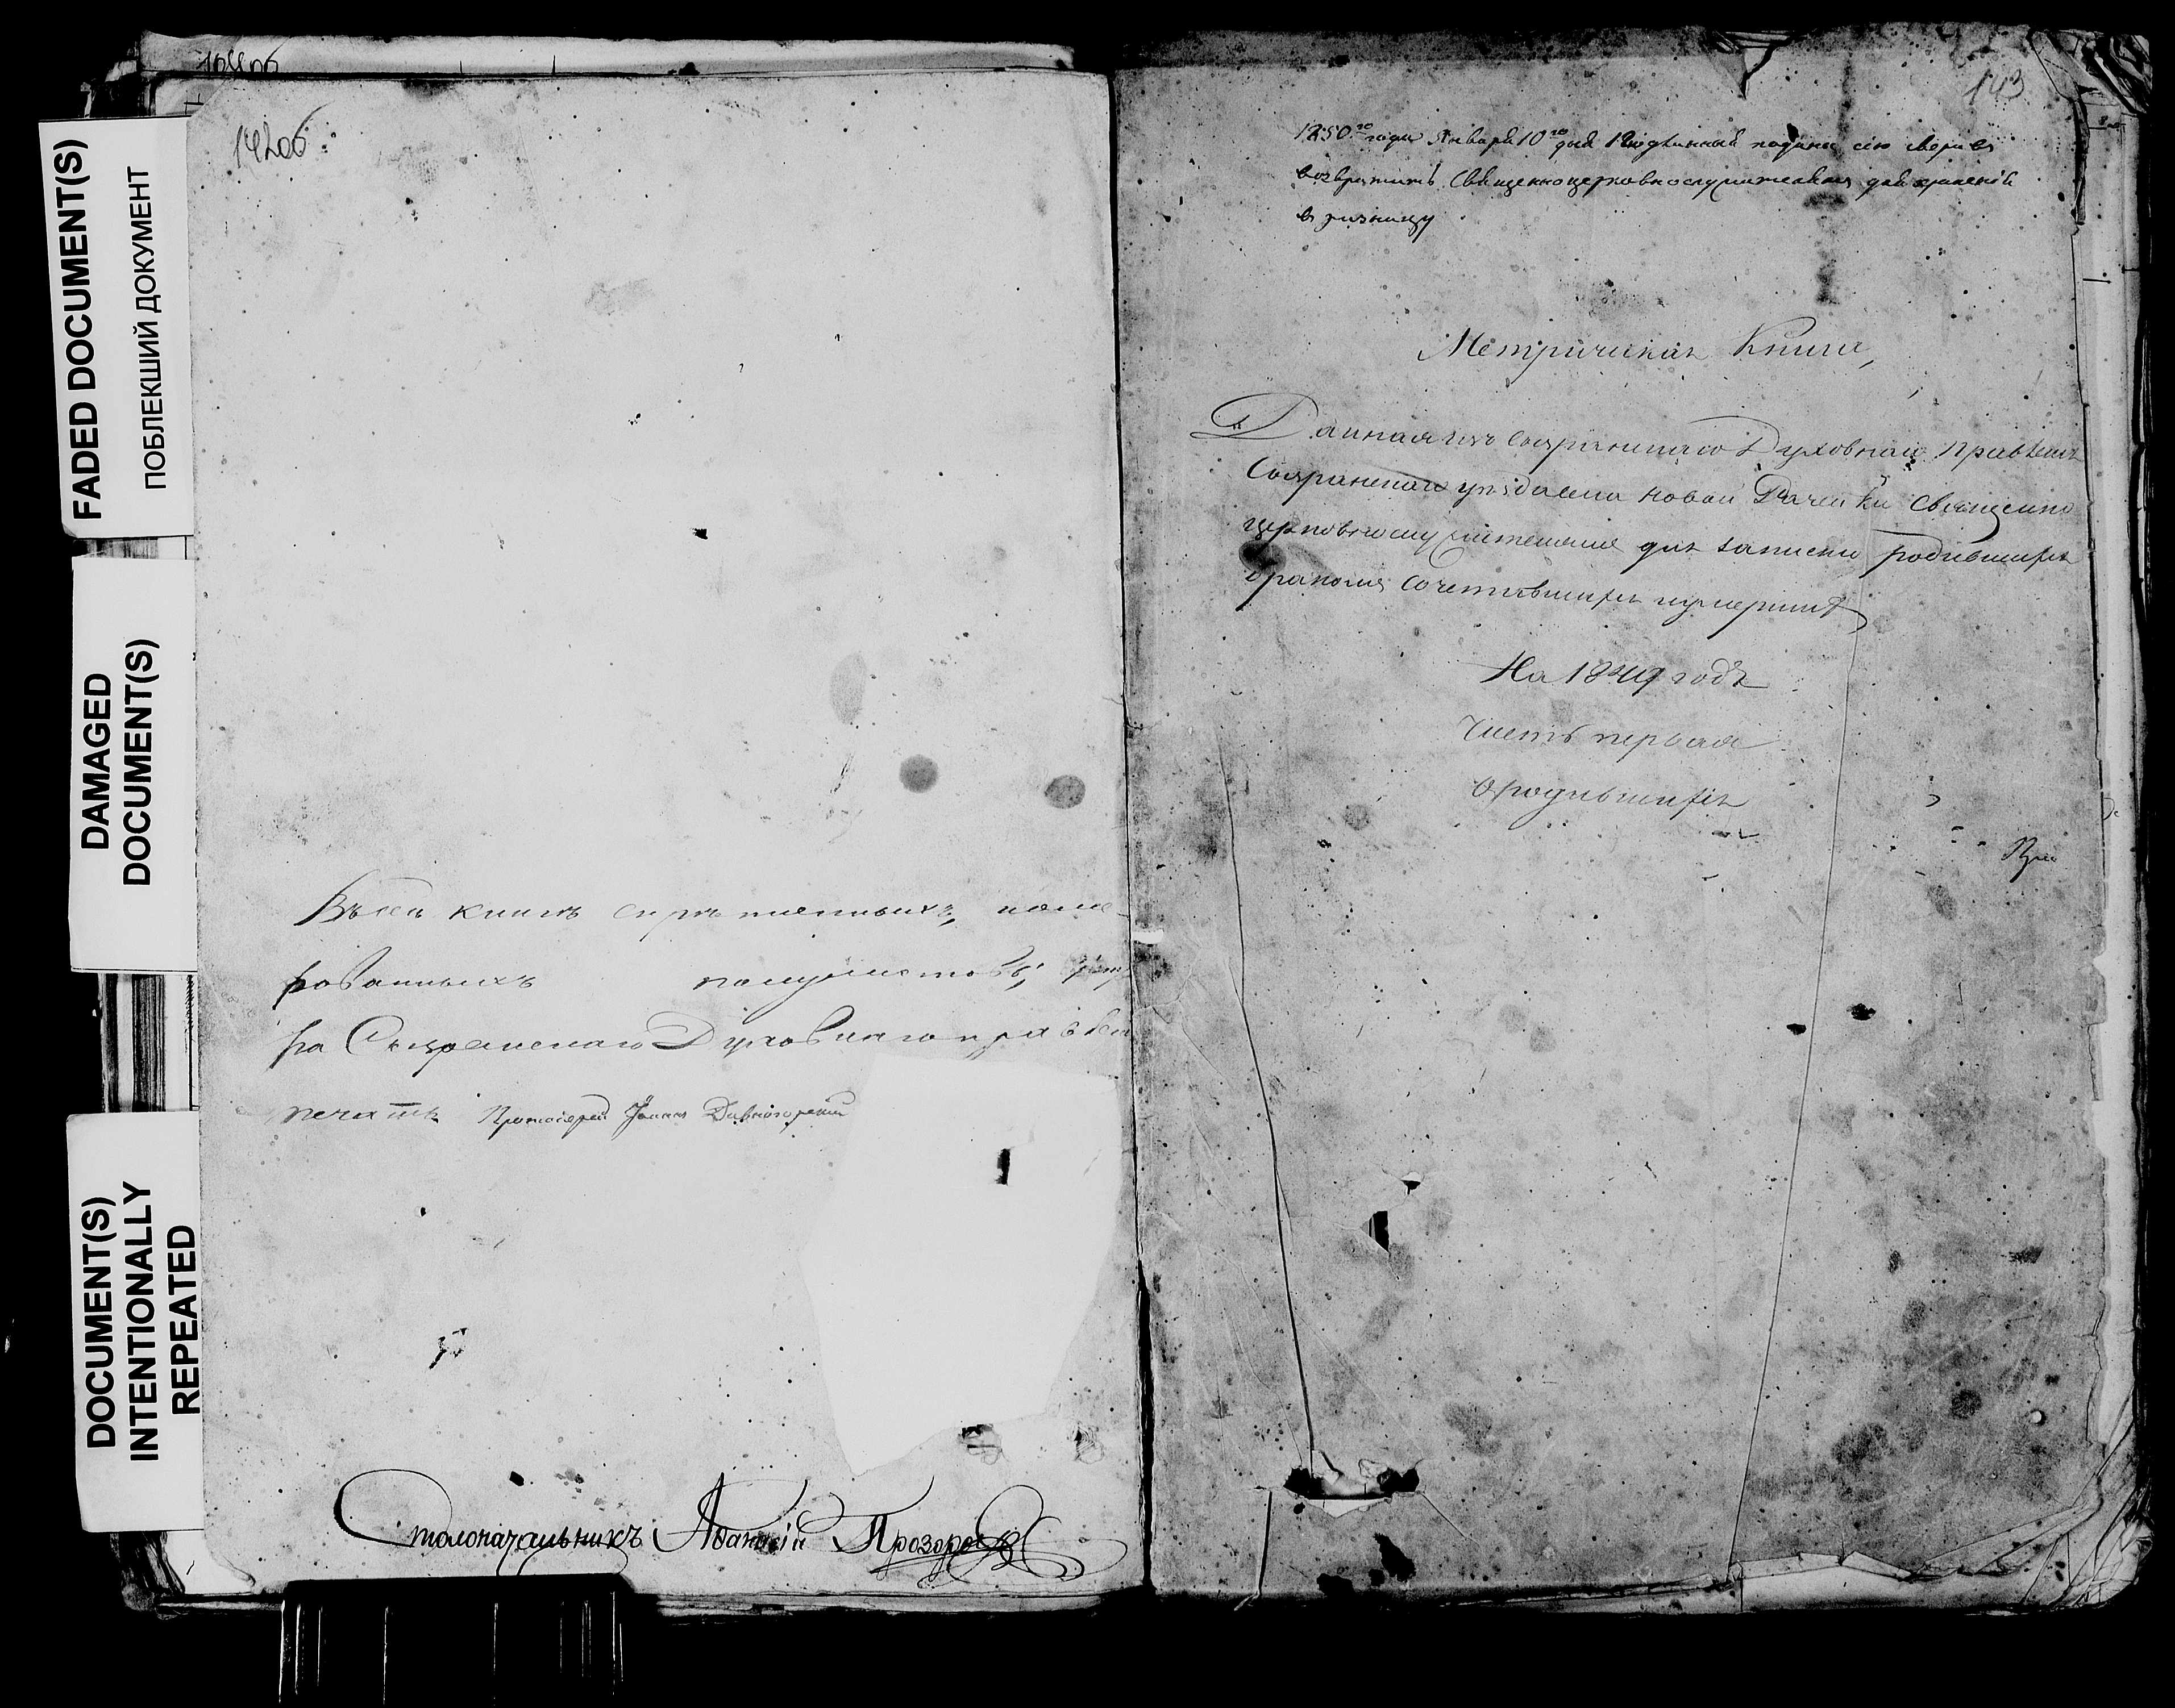 FADED DOCUMENT(S)
ПОБЛЕКШИЙ ДОКУМЕНТ
DAMAGED
DOCUMENT(S)
DOCUMENT(S)
INTENTIONALLY
REPEATED
Въ сей книгѣ скрѣпленныхъ, номе-
рованныхъ полулистовъ,
ра Сызранскаго Духовнаго правлен
печать Протоіерей Іоаннъ Дивногорскій
Столоначальникъ Афанасій Прозоровъ
143
1850го года Января 10го дня подлинный сію сверивъ
возвратить Священноцерковнослужителямъ для храненія
в ризницу
Метрическая Книга,
Данная изъ Сызранскаго Духовнаго Правленія
Сызранскаго уѣзда села новой Рачейки Священно
церковнослужителямъ для записки родившихся
бракомъ сочетавшихся и умершихъ
На 1849 годъ
Часть первая
О родившихся